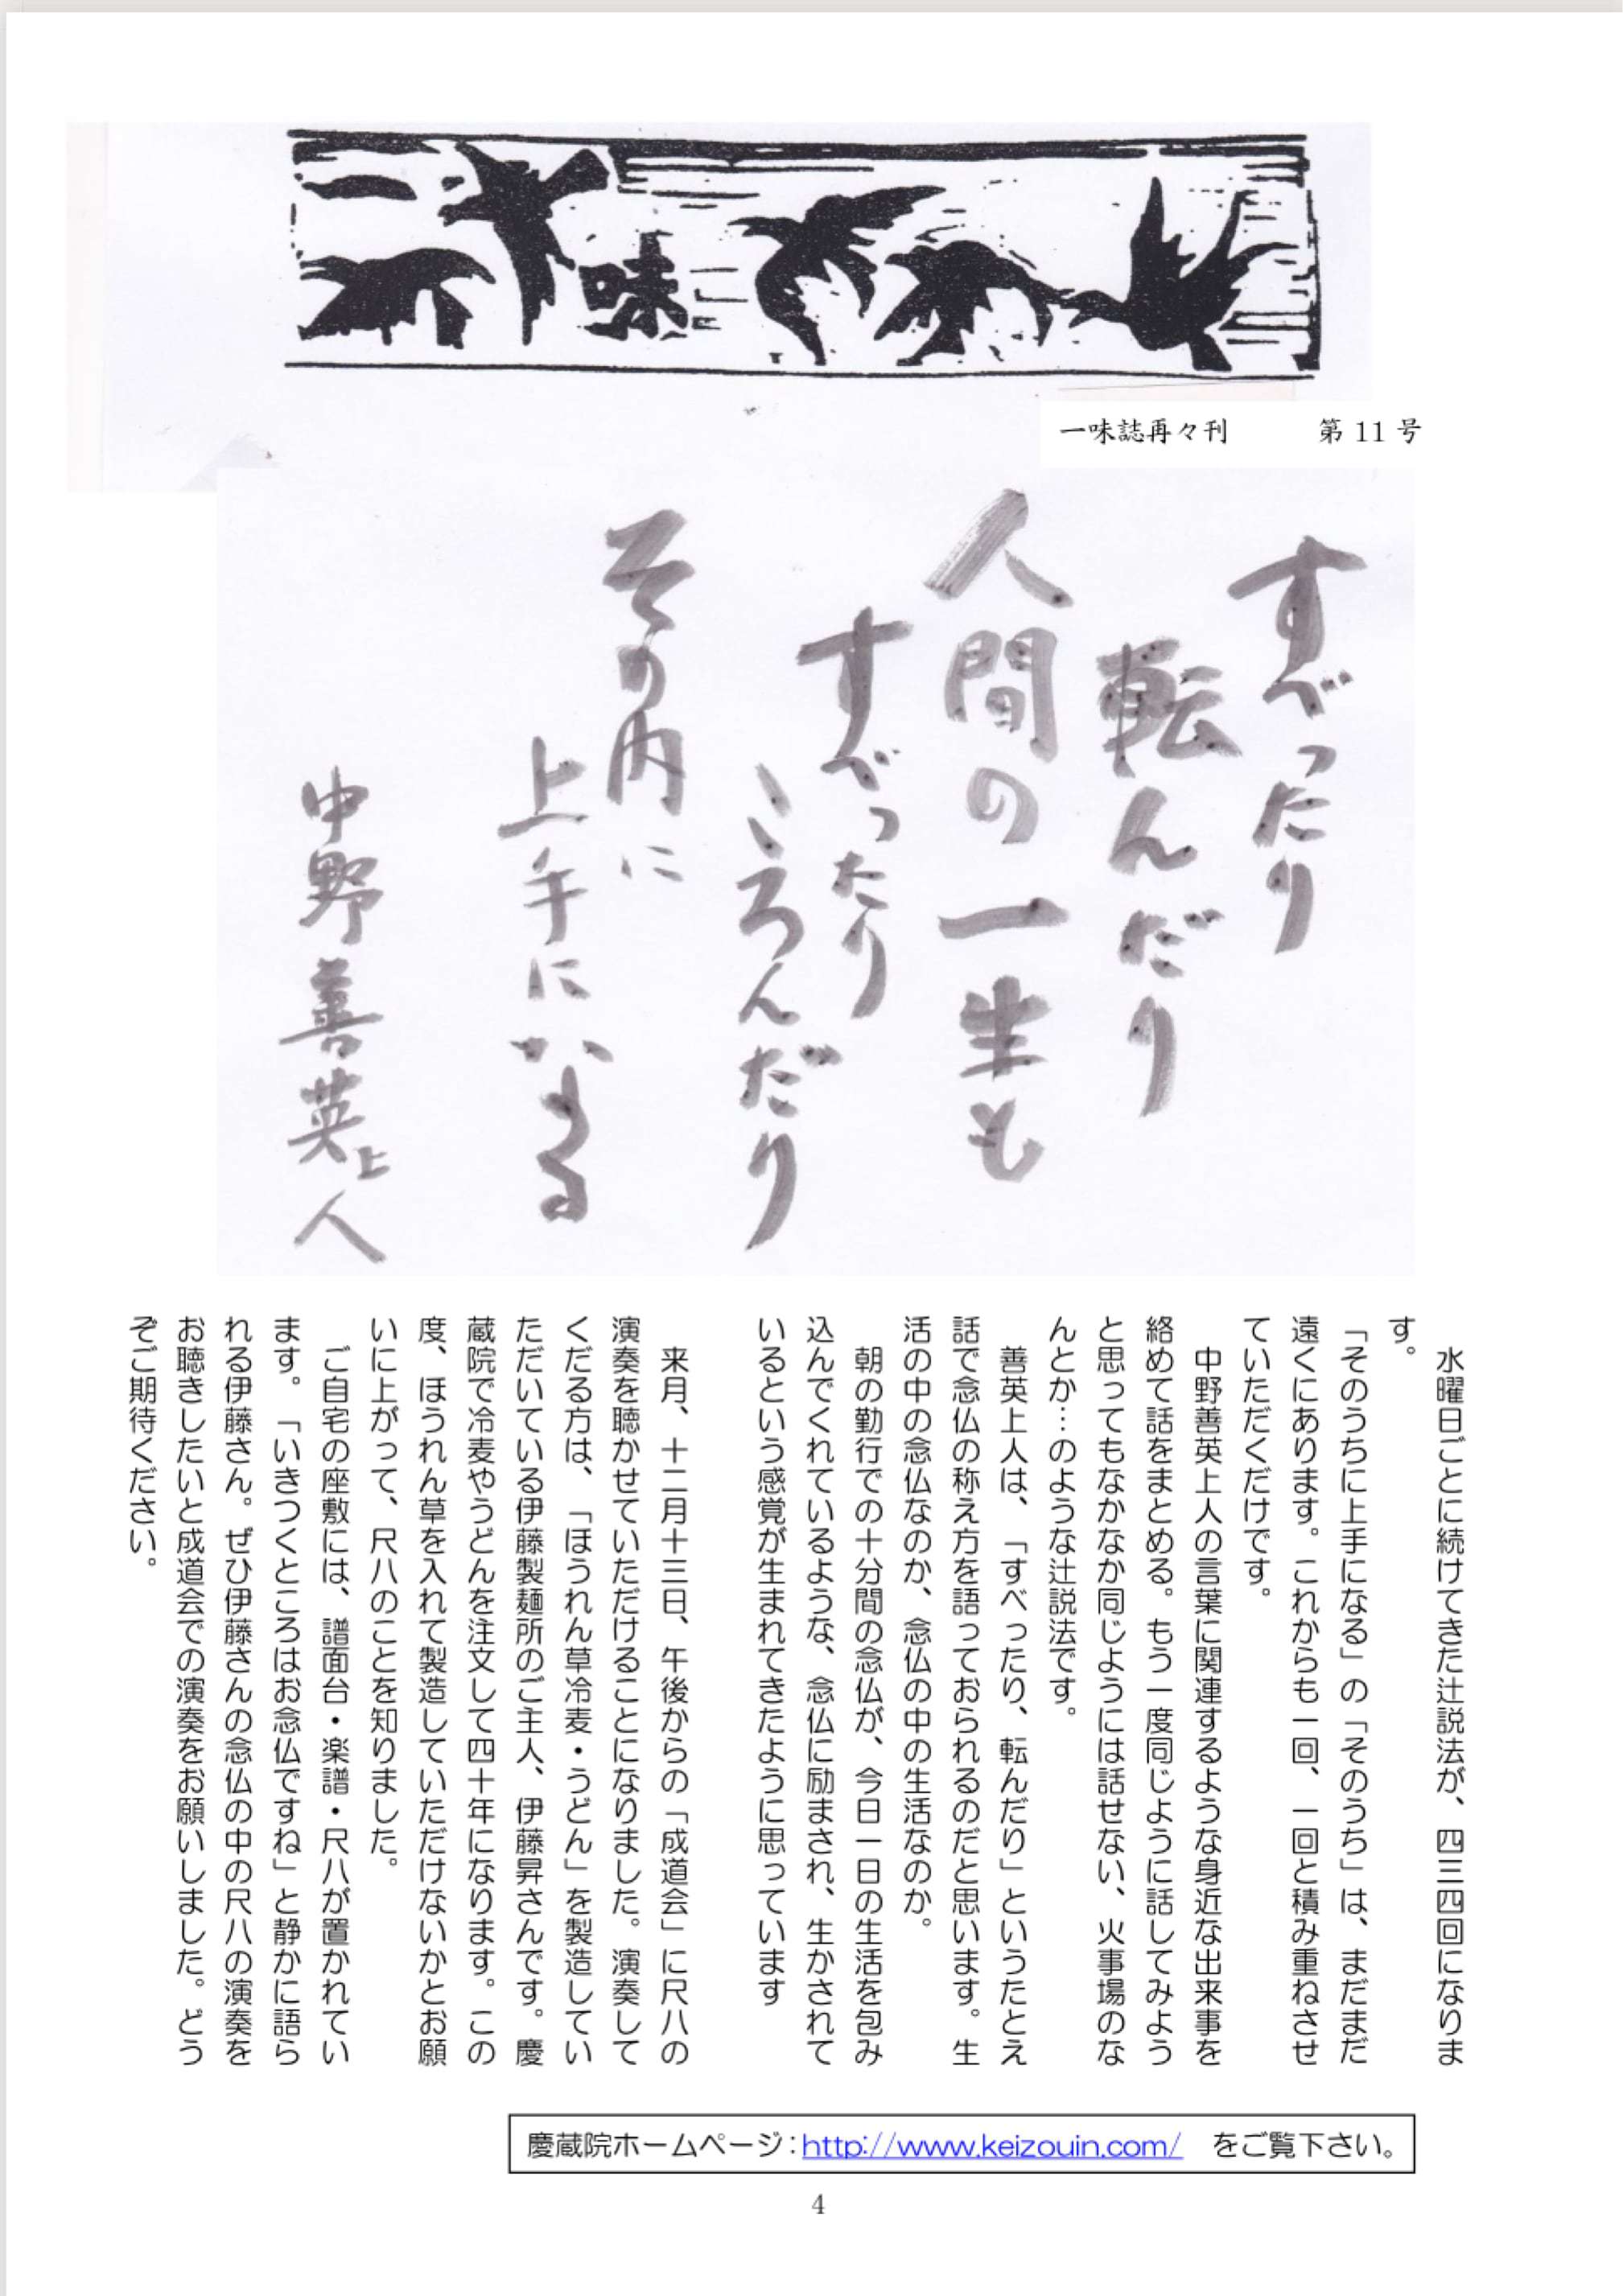 一味
一味誌再々刊　第 11 号
すべったり
転んだり
人間の一生も
すべったり
ころんだり
その内に
上手になる
中野善英上人
水曜日ごとに続けてきた辻説法が、四三四回になりま
す。
「そのうちに上手になる」の「そのうち」は、まだまだ
遠くにあります。これからも一回、一回と積み重ねさせ
ていただくだけです。
中野善英上人の言葉に関連するような身近な出来事を
絡めて話をまとめる。もう一度同じように話してみよう
と思ってもなかなか同じようには話せない、火事場のな
んとか…のような辻説法です。
善英上人は、「すべったり、転んだり」というたとえ
話で念仏の称え方を語っておられるのだと思います。生
活の中の念仏なのか、念仏の中の生活なのか。
朝の勤行での十分間の念仏が、今日一日の生活を包み
込んでくれているような、念仏に励まされ、生かされて
いるという感覚が生まれてきたように思っています
来月、十二月十三日、午後からの「成道会」に尺八の
演奏を聴かせていただけることになりました。演奏して
くだる方は、「ほうれん草冷麦・うどん」を製造してい
ただいている伊藤製麺所のご主人、伊藤昇さんです。慶
蔵院で冷麦やうどんを注文して四十年になります。この
度、ほうれん草を入れて製造していただけないかとお願
いに上がって、尺八のことを知りました。
ご自宅の座敷には、譜面台・楽譜・尺八が置かれてい
ます。「いきつくところはお念仏ですね」と静かに語ら
れる伊藤さん。ぜひ伊藤さんの念仏の中の尺八の演奏を
お聴きしたいと成道会での演奏をお願いしました。どう
ぞご期待ください。
慶蔵院ホームページ：http://www.keizouin.com/　をご覧下さい。
4